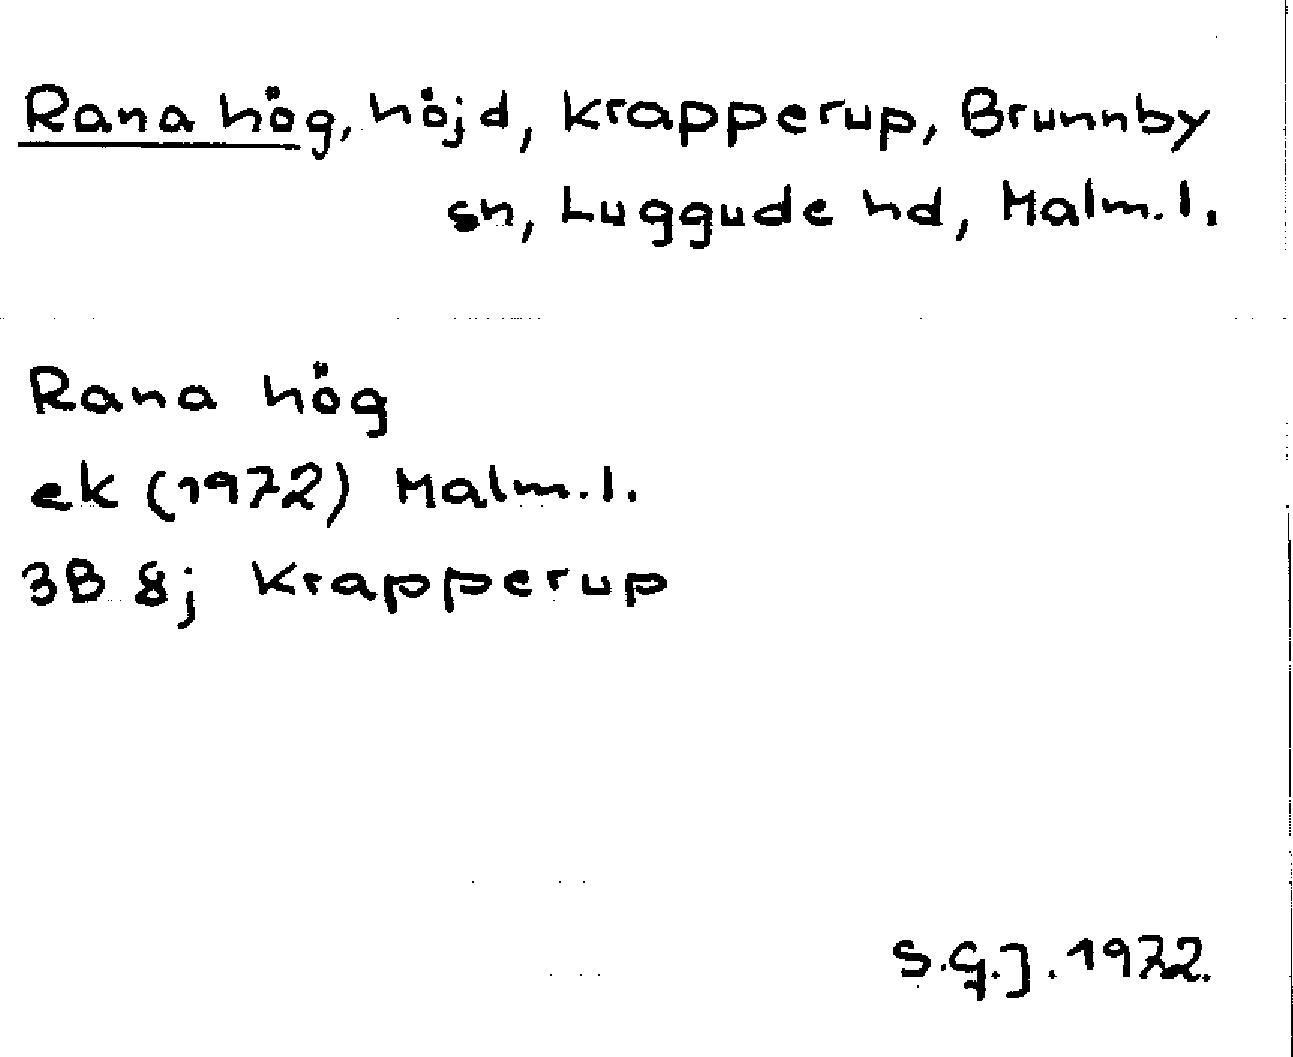 Rana hög, höjd, Krapperup, Brunnby
sn, Luggude hd, Malm.l.
Rana hög
ek (1972) Malm.l.
3B 8j Krapperup
S.G.J. 1972.